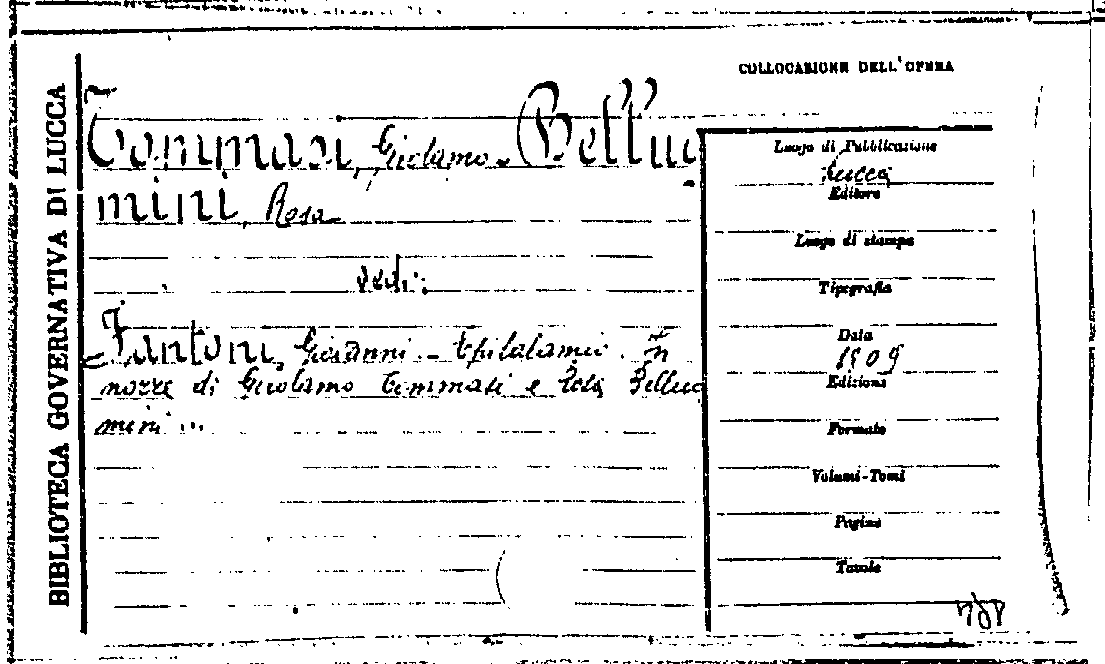 BIBLIOTECA GOVERNATIVA DI LUCCA
COLLOCAZIONE DELL'OPERA
Tommasi, Girolamo - Belluo
mini, Rosa
vedi:
Fantoni, Giovanni - Epitalamio. In
nozze di Girolamo Tommasi e Rosa Belluo
mini ...
Luogo di Pubblicazione
Lucca
Editore
Luogo di stampa
Tipografia
Data
1809
Edizione
Formato
Volumi-Tomi
Pagine
Tavole